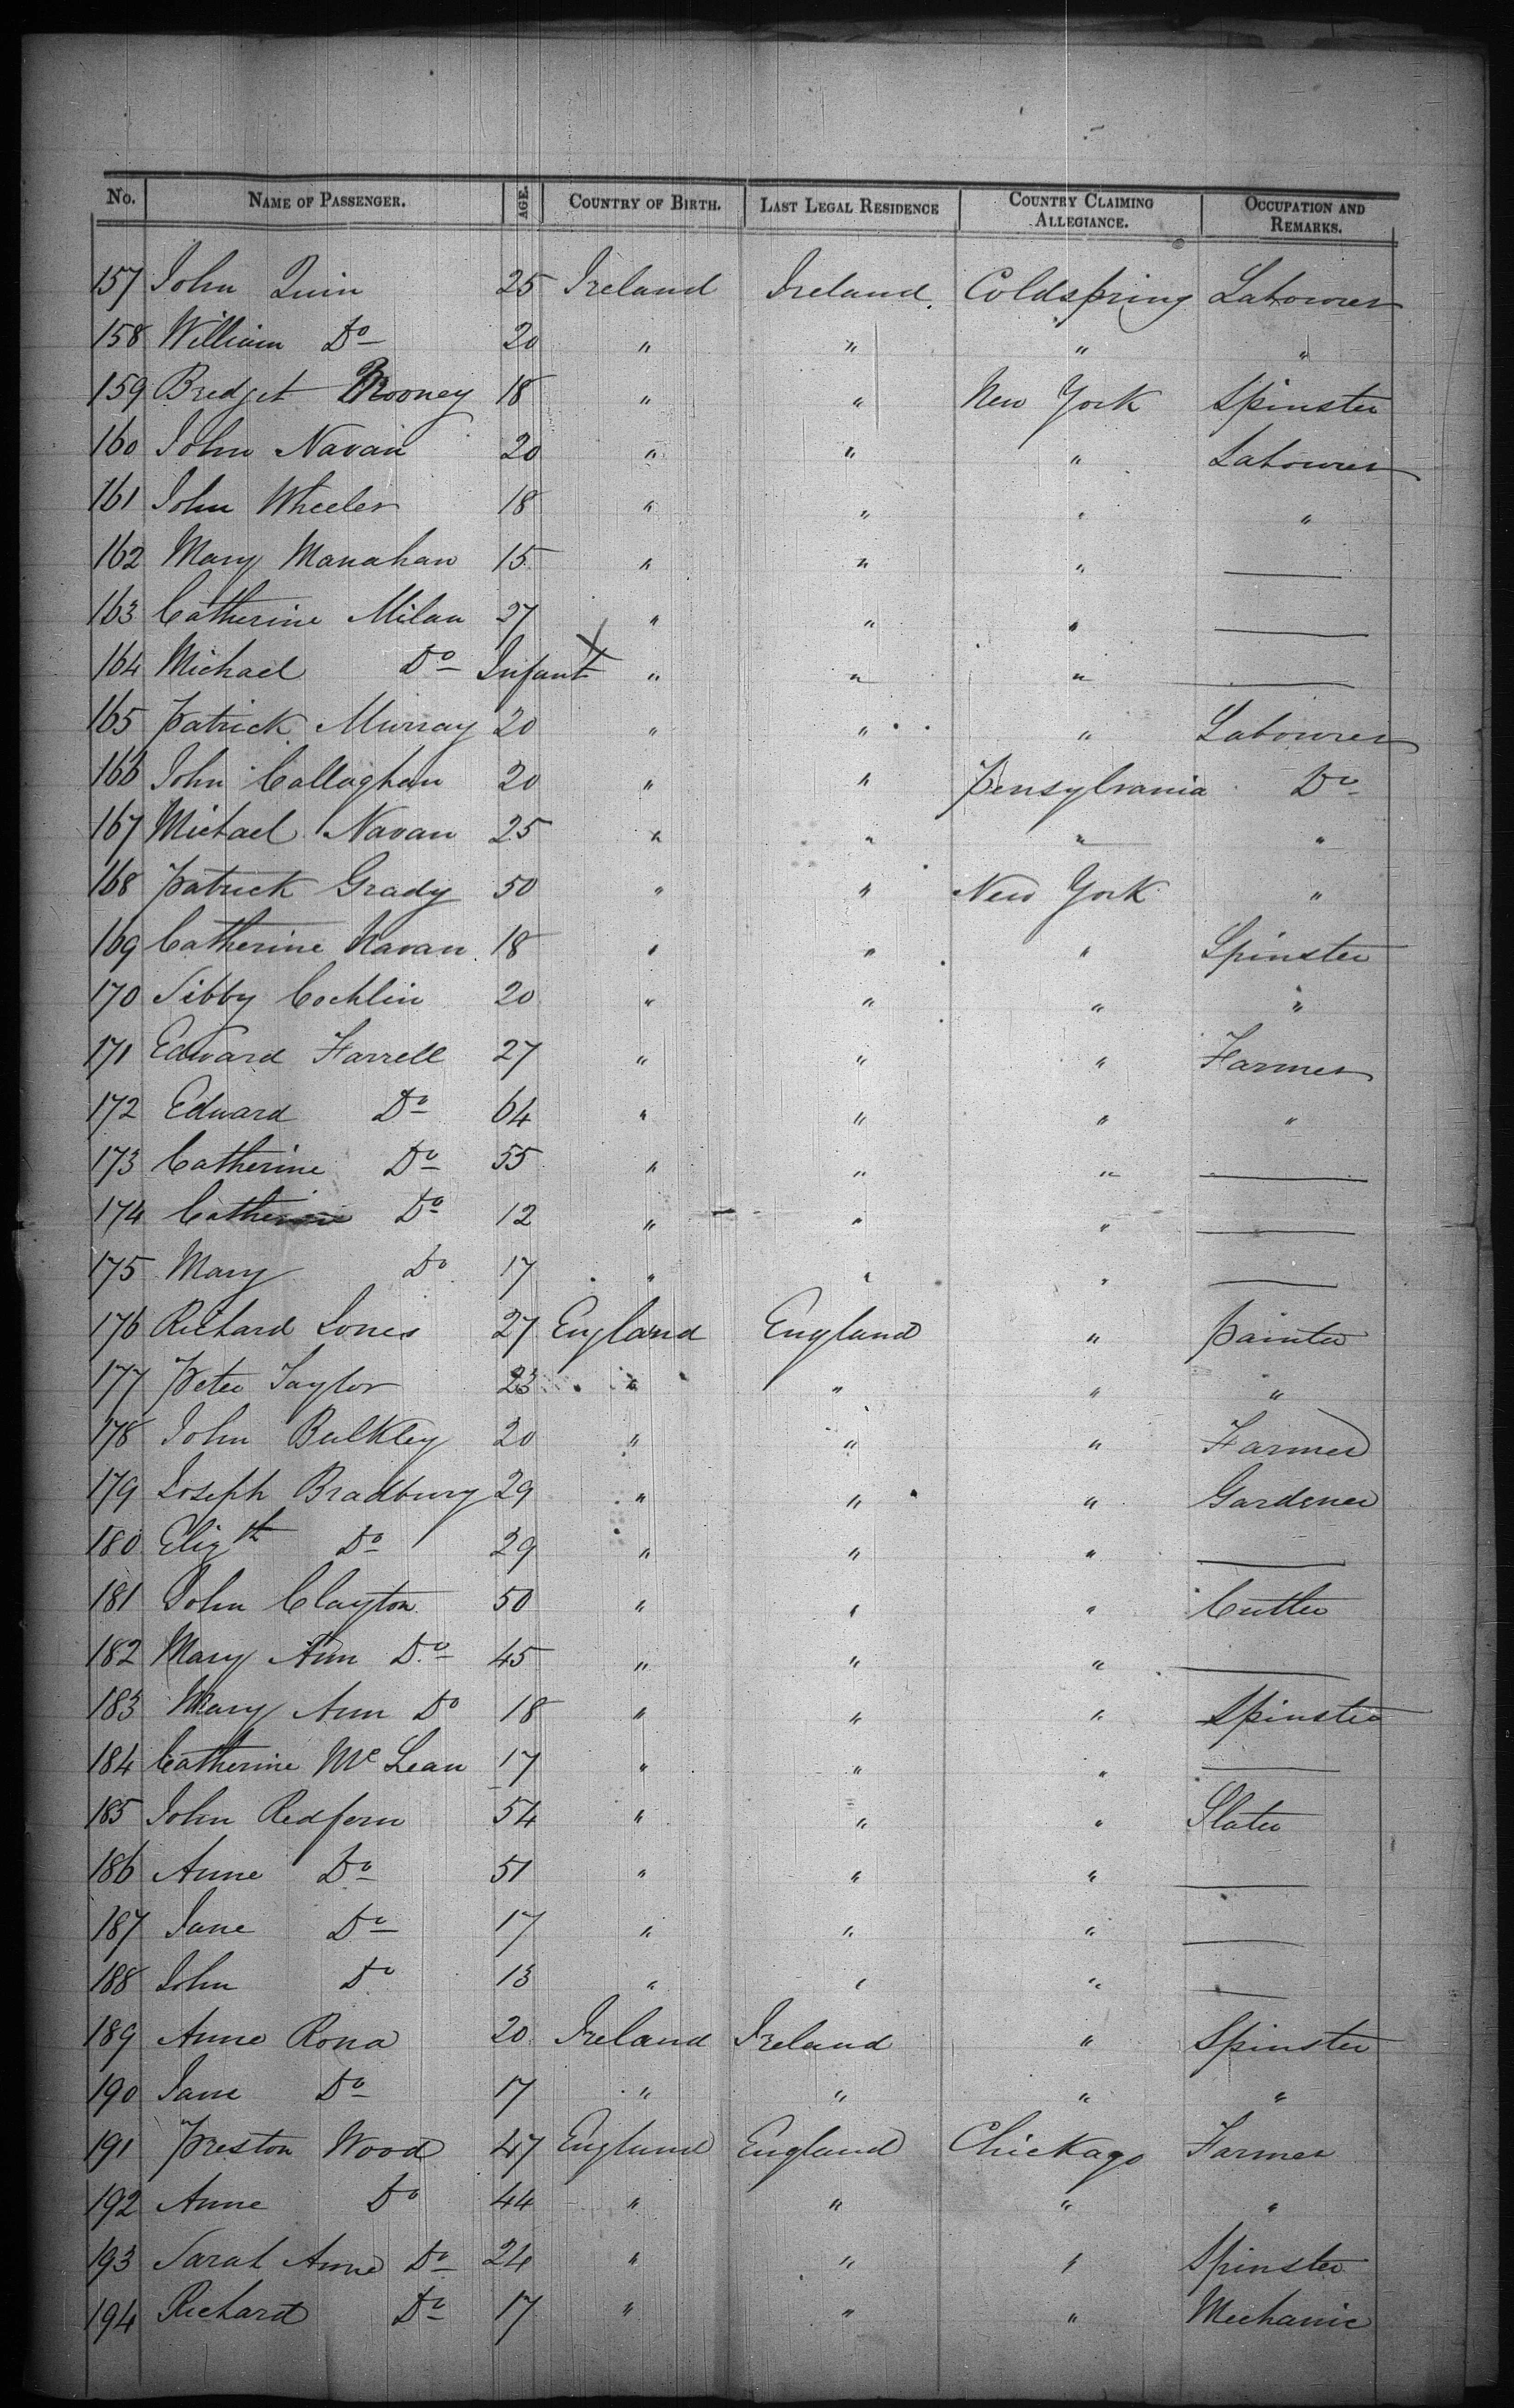 No. NAME OF PASSENGER. AGE. COUNTRY OF BIRTH. LAST LEGAL RESIDENCE COUNTRY CLAIMING ALLEGIANCE. OCCUPATION AND REMARKS.
157 John Quin 25 Ireland Ireland Coldspring Labourer
158 William Do 20 " " " "
159 Bredget Mooney 18 " " New York Spinster
160 John Navan 20 " " " Labourer
161 John Wheeler 18 " " " "
162 Mary Manahan 15 " " " —
163 Catherine Milan 27 " " " —
164 Michael Do Infant X " " " —
165 Patrick Murray 20 " " " Labourer
166 John Callaghan 20 " " Pensylvania Do
167 Michael Navan 25 " " " "
168 Patrick Grady 50 " " New York "
169 Catherine Navan 18 " " " Spinster
170 Sibby Cochlin 20 " " " "
171 Edward Farrell 27 " " " Farmer
172 Edward Do 64 " " " "
173 Catherine Do 55 " " " —
174 Catherine Do 12 " " " —
175 Mary Do 17 " " " —
176 Richard Jones 27 England England " Painter
177 Peter Taylor 23 " " " "
178 John Bulkley 20 " " " Farmer
179 Joseph Bradbury 29 " " " Gardener
180 Elizth Do 29 " " " —
181 John Clayton 50 " " " Cutler
182 Mary Ann Do 45 " " " —
183 Mary Ann Do 18 " " " Spinster
184 Catherine Mc Lean 17 " " " —
185 John Redfern 54 " " " Slater
186 Anne Do 51 " " " —
187 Jane Do 17 " " " —
188 John Do 13 " " " —
189 Anne Rona 20 Ireland Ireland " Spinster
190 Jane Do 17 " " " "
191 Preston Wood 47 England England Chickago Farmer
192 Anne Do 44 " " " "
193 Sarah Anne Do 24 " " " Spinster
194 Richard Do 17 " " " Mechanic